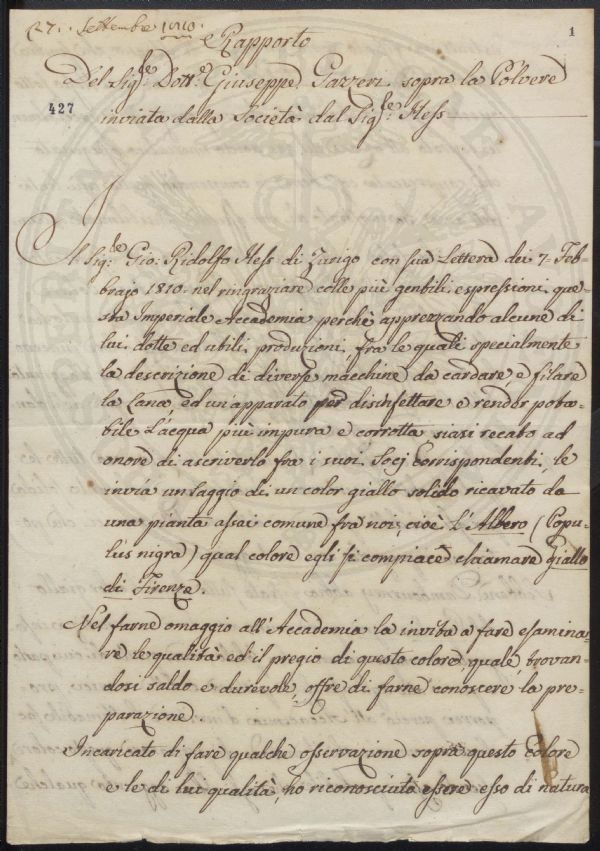 27. Settembre 1810.
1
Rapporto
Del Sig.e Dott.e Giuseppe Gazzeri sopra la Polvere
427
inviata dalla Società dal Sig.e Hess
Il Sig.e Gio: Ridolfo Hess di Zurigo con sua Lettera dei 7. Feb-
brajo 1810. nel ringraziare colle più gentili espressioni que-
sta Imperiale Accademia perchè apprezzando alcune di
lui dotte ed utili produzioni, fra le quali specialmente
la descrizione di diverse macchine da cardare, e filare
la Lana, ed un'apparato per disinfettare e render pota-
bile L'acqua più impura e corrotta siasi recato ad
onore di ascriverlo fra i suoi Socj Corrispondenti, le
invia un saggio di un color giallo solido ricavato da
una pianta assai comune frà noi, cioè l'Albero (Popu-
lus nigra) qual colore egli si compiace chiamare giallo
di Firenze.
Nel farne omaggio all'Accademia la invita a fare esamina-
re le qualità ed il pregio di questo colore, quale, trovan-
dosi saldo e durevole, offre di farne conoscere la pre-
parazione.
Incaricato di fare qualche osservazione sopra questo Colore
e le di lui qualità, hò riconosciuto essere esso di natura